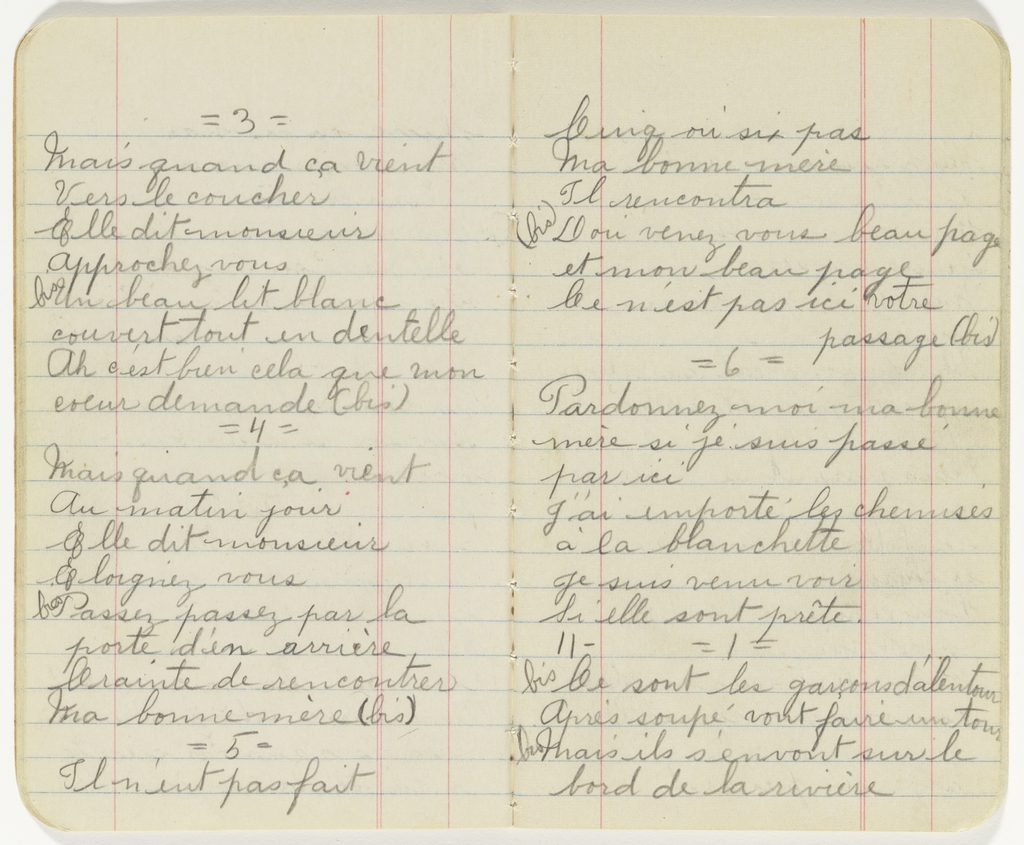 = 3 =
Mais quand ça vient
Vers le coucher
Elle dit monsieur
Approchez vous
bis Un beau lit blanc
couvert tout en dentelle
Ah c'est bien cela que mon
coeur demande (bis)
= 4 =
Mais quand ça vient
Au matin jour
Elle dit monsieur
Eloignez vous
bis Passez passez par la
porte d'en arrière
Crainte de rencontrer
Ma bonne mère (bis)
= 5 =
Il n'eut pas fait
Cinq ou six pas
Ma bonne mère
Il rencontra
(bis) D'ou venez vous beau page
et mon beau page
Ce n'est pas ici votre
passage (bis)
= 6 =
Pardonnez-moi ma bonne
mère si je suis passé
par ici
J'ai importé les chemises
à la blanchette
Je suis venu voir
Si elle sont prête.
11- = 1 =
bis Ce sont les garçons d'alentour
Après soupé vont faire un tour
bis Mais ils s'envont sur le
bord de la rivière